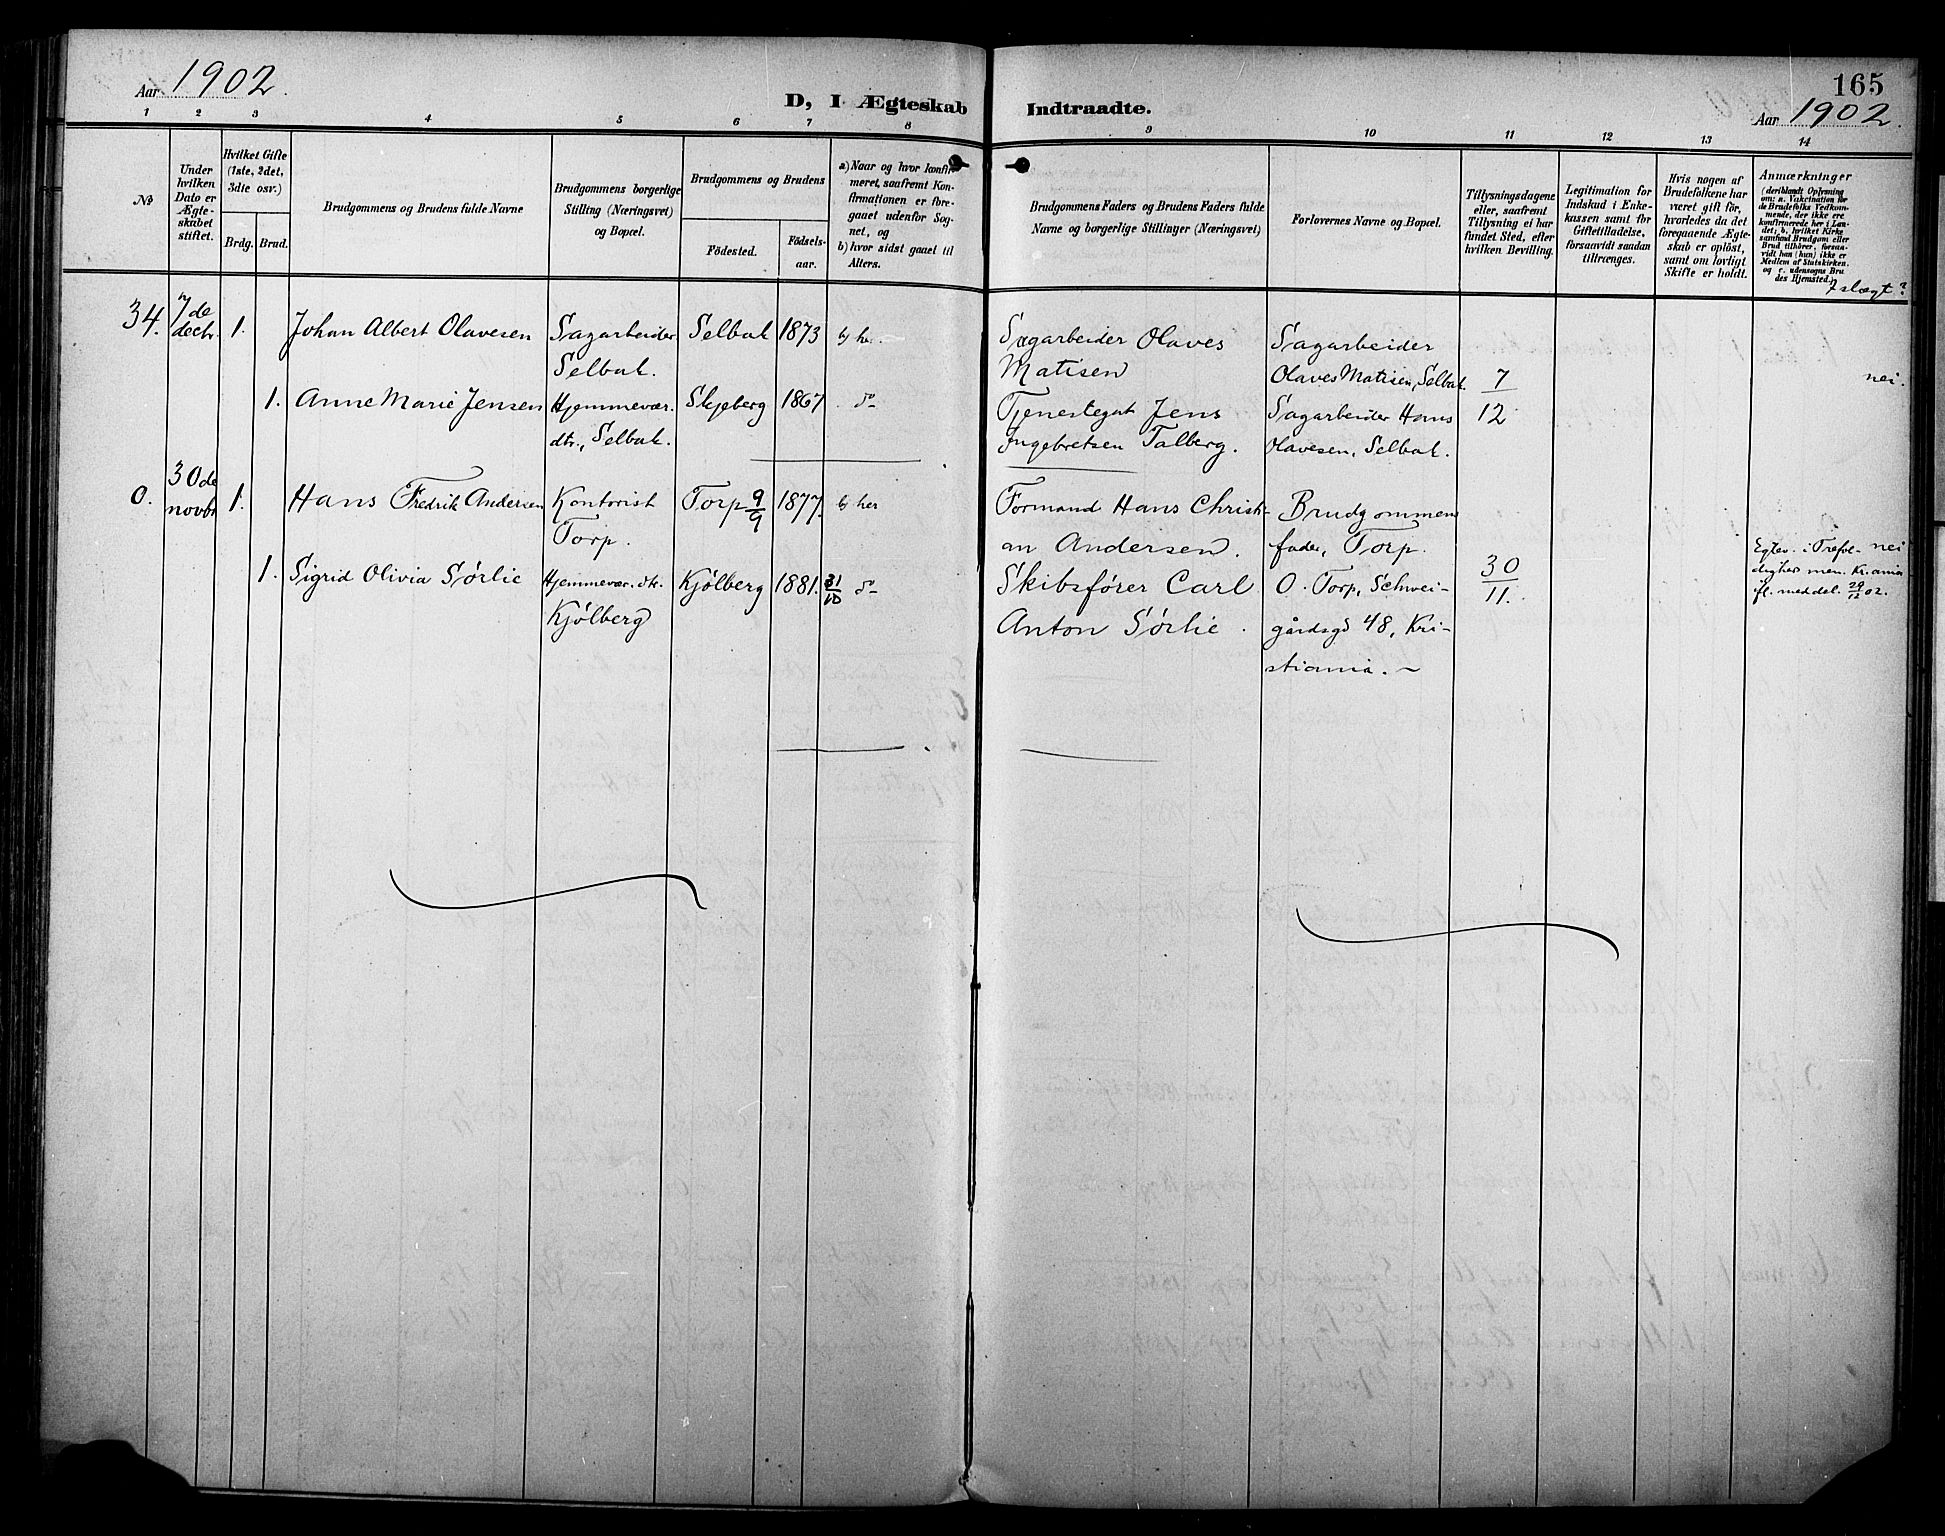 Aar 1902.
D, I Ægteskab Indtraadte.
165
Aar 1902.
1 2 3 4 5 6 7 8 9 10 11 12 13 14
No
Under hvilken Dato er Ægteskabet stiftet.
Hvilket Gifte (1ste, 2det, 3die osv.)
Brdg. Brud.
Brudgommens og Brudens fulde Navne
Brudgommens borgerlige Stilling (Næringsvei) og Bopæl.
Brudgommens og Brudens
Födested. Födselsaar.
a) Naar og hvor konfirmeret, saafremt Konfirmationen er foregaaet udenfor Sognet, og
b) hvor sidst gaaet til Alters.
Brudgommens Faders og Brudens Faders fulde Navne og borgerlige Stillinger (Næringsvei)
Forlovernes Navne og Bopæl.
Tillysningsdagene eller, saafremt Tillysning ei har fundet Sted, efter hvilken Bevilling.
Legitimation for Indskud i Enkekassen samt for Giftetilladelse, forsaavidt saadan tiltrænges.
Hvis nogen af Brudefolkene har været gift för, hvorledes da det foregaaende Ægteskab er oplöst, samt om lovligt Skifte er holdt.
Anmærkninger
(deriblandt Oplysning om: a. Vakcination för de Brudefolks Vedkommende, der ikke ere konfirmerede her i Landet; b. hvilket Kirkesamfund Brudgom eller Brud tilhörer, forsaavidt han (hun) ikke er Medlem af Statskirken, og c. udensogns Brudes Hjemsted.)
I slægt?
34. 7de dechr. 1. Johan Albert Olavesen Sagarbeider Selbak. Selbak 1873 b) her.
Sagarbeider Olaves Matisen
Sagarbeider Olaves Matisen, Selbak
7/12
nei.
1. Anne Marie Jensen Hjemmevær. dtr., Selbak. Skjeberg 1867 do
Tjenestegut Jens Ingebretsen Talberg.
Sagarbeider Hans Olavesen, Selbak.
0. 30de novbr 1. Hans Fredrik Andersen Kontorist Torp. Torp 9/9 1877. b) her
Formand Hans Christian Andersen.
Brudgommens fader, Torp.
1. Sigrid Olivia Sørlie Hjemmevær. dtr. Kjølberg Kjølberg 1881. 31/10 do
Skibsfører Carl Anton Sørlie.
O. Torp, Schweigårdsgd 48, Kristiania.
30/11.
Egtev. i Trefoldighets men. Kr.ania
nei
fl. meddel. 29/12 02.